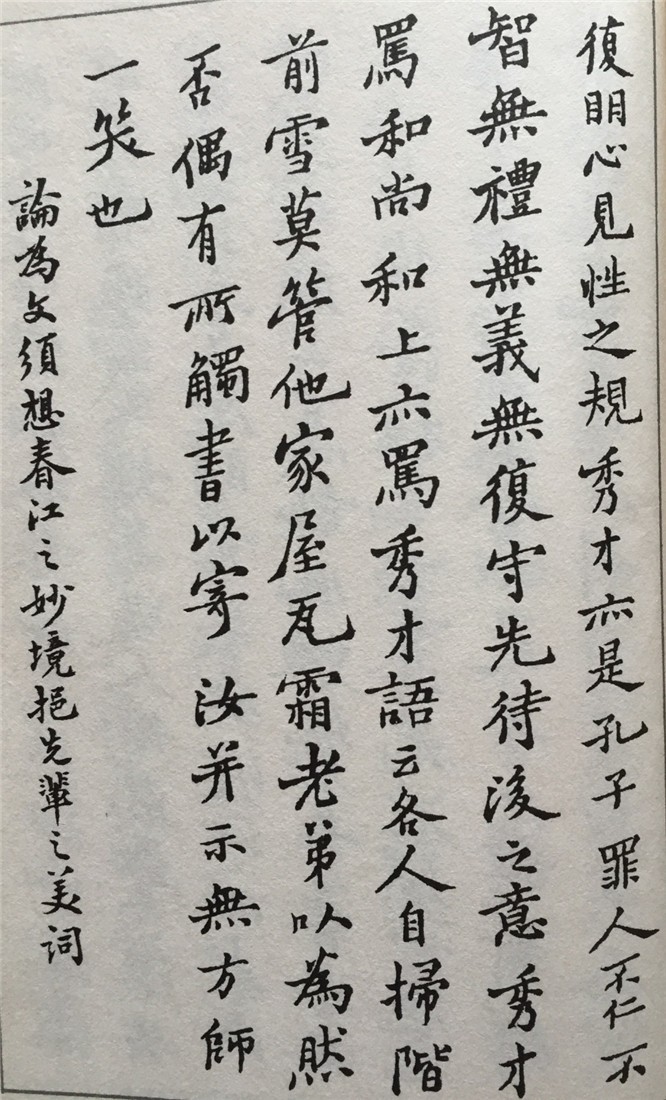 復明心見性之規秀才亦是孔子罪人不仁不
智無禮無義無復守先待後之意秀才
罵和尚和上亦罵秀才語云各人自掃階
前雪莫管他家屋瓦霜老弟以為然
否偶有所觸書以寄汝并示無方師
一笑也
論為文須想春江之妙境挹先輩之美詞